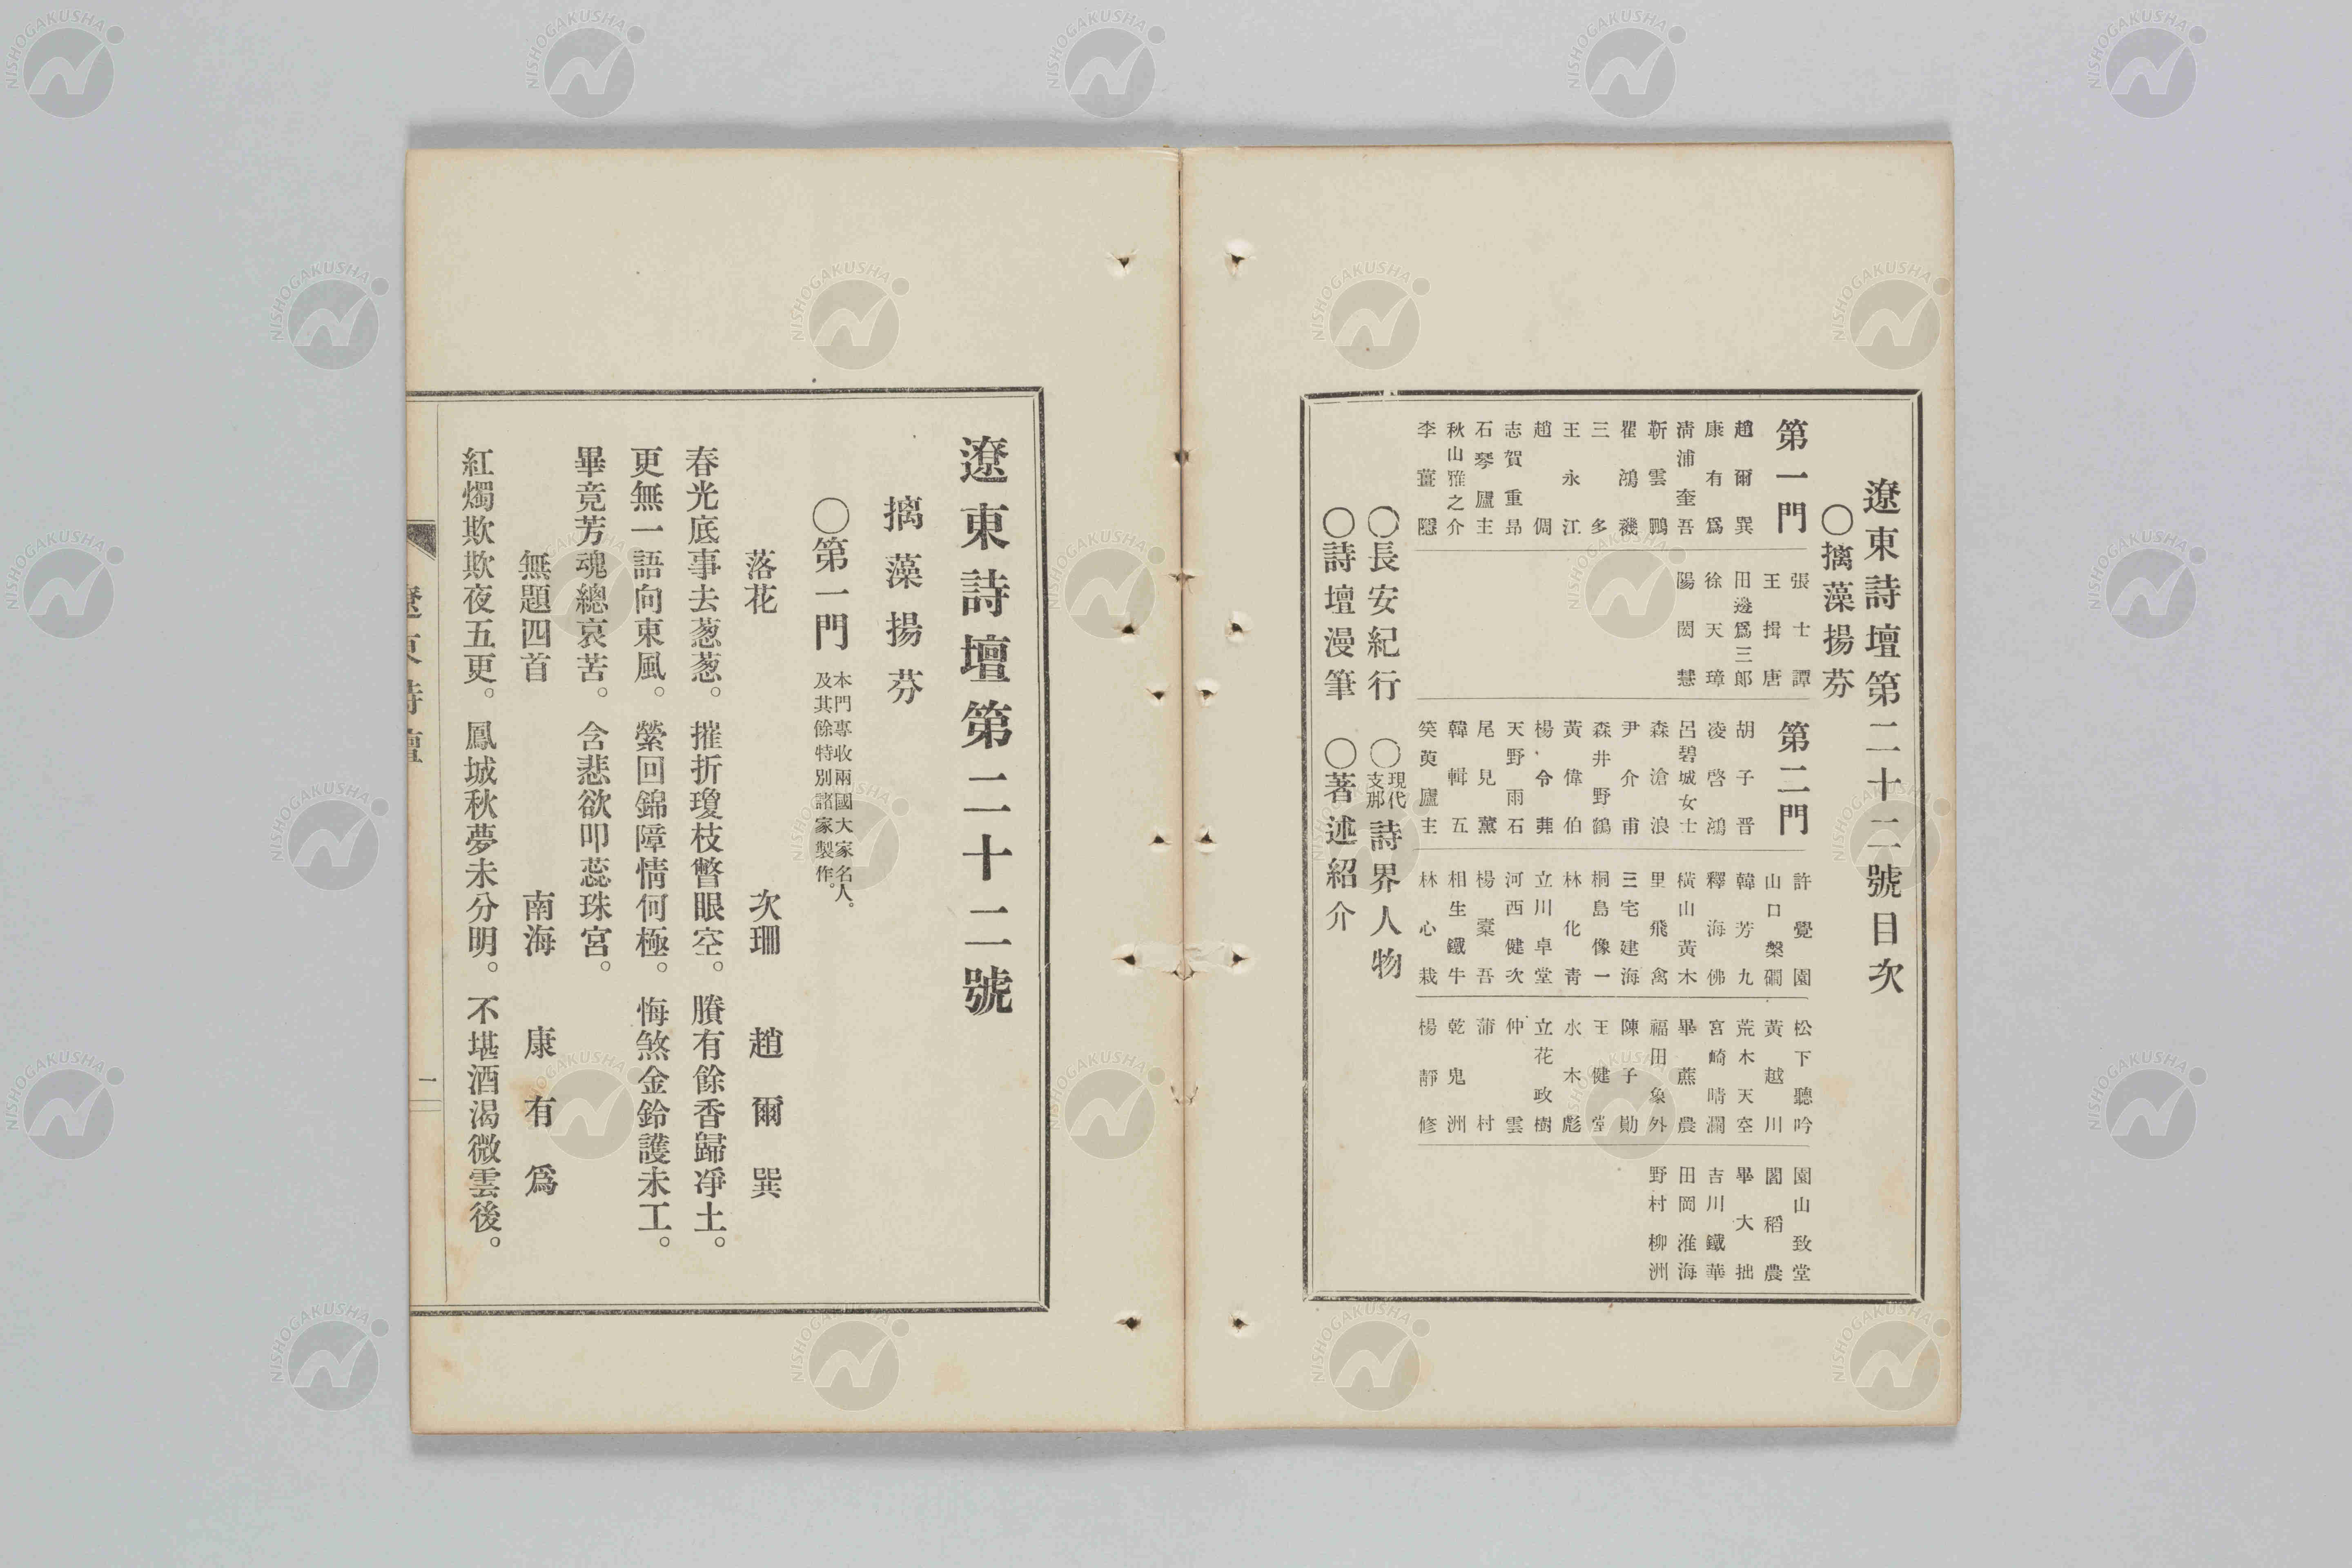 遼東詩壇第二十二號目次
○摛藻揚芬
第一門
趙爾巽
康有爲
淸浦奎吾
靳雲鵬
瞿鴻禨
三多
王永江
趙倜
志賀重昂
石琴廬主
秋山雅之介
李薑隱
張士譚
王揖唐
田邊爲三郎
徐天璋
陽閎慧
第二門
胡子晋
凌啓鴻
呂碧城女士
森滄浪
尹介甫
森井野鶴
黃偉伯
楊令茀
天野雨石
尾見薰
韓輯五
笑萸廬主
許覺園
山口槃礀
韓芳九
釋海佛
橫山黃木
里飛禽
三宅建海
桐島像一
林化青
立川卓堂
河西健次
楊槖吾
相生鐵牛
林心栽
松下聽吟
黃越川
荒木天空
宮崎晴瀾
畢蔗農
福田象外
陳子勛
王健堂
水木彪
立花政樹
仲雲
蒲村
乾鬼洲
楊靜修
園山致堂
閻稻農
畢大拙
吉川鐵華
田岡淮海
野村柳洲
○長安紀行
○現代支那詩界人物
○詩壇漫筆
○著述紹介
遼東詩壇第二十二號
摛藻揚芬
○第一門 本門專收兩國大家名人。
及其餘特別諸家製作。
落花 次珊 趙爾巽
春光底事去葱葱。摧折瓊枝瞥眼空。賸有餘香歸凈土。
更無一語向東風。縈回錦障情何極。悔煞金鈴護未工。
畢竟芳魂總哀苦。含悲欲叩蕊珠宮。
無題四首 南海 康有爲
紅燭欺欺夜五更。鳳城秋夢未分明。不堪酒渴微雲後。
遼東詩壇
一